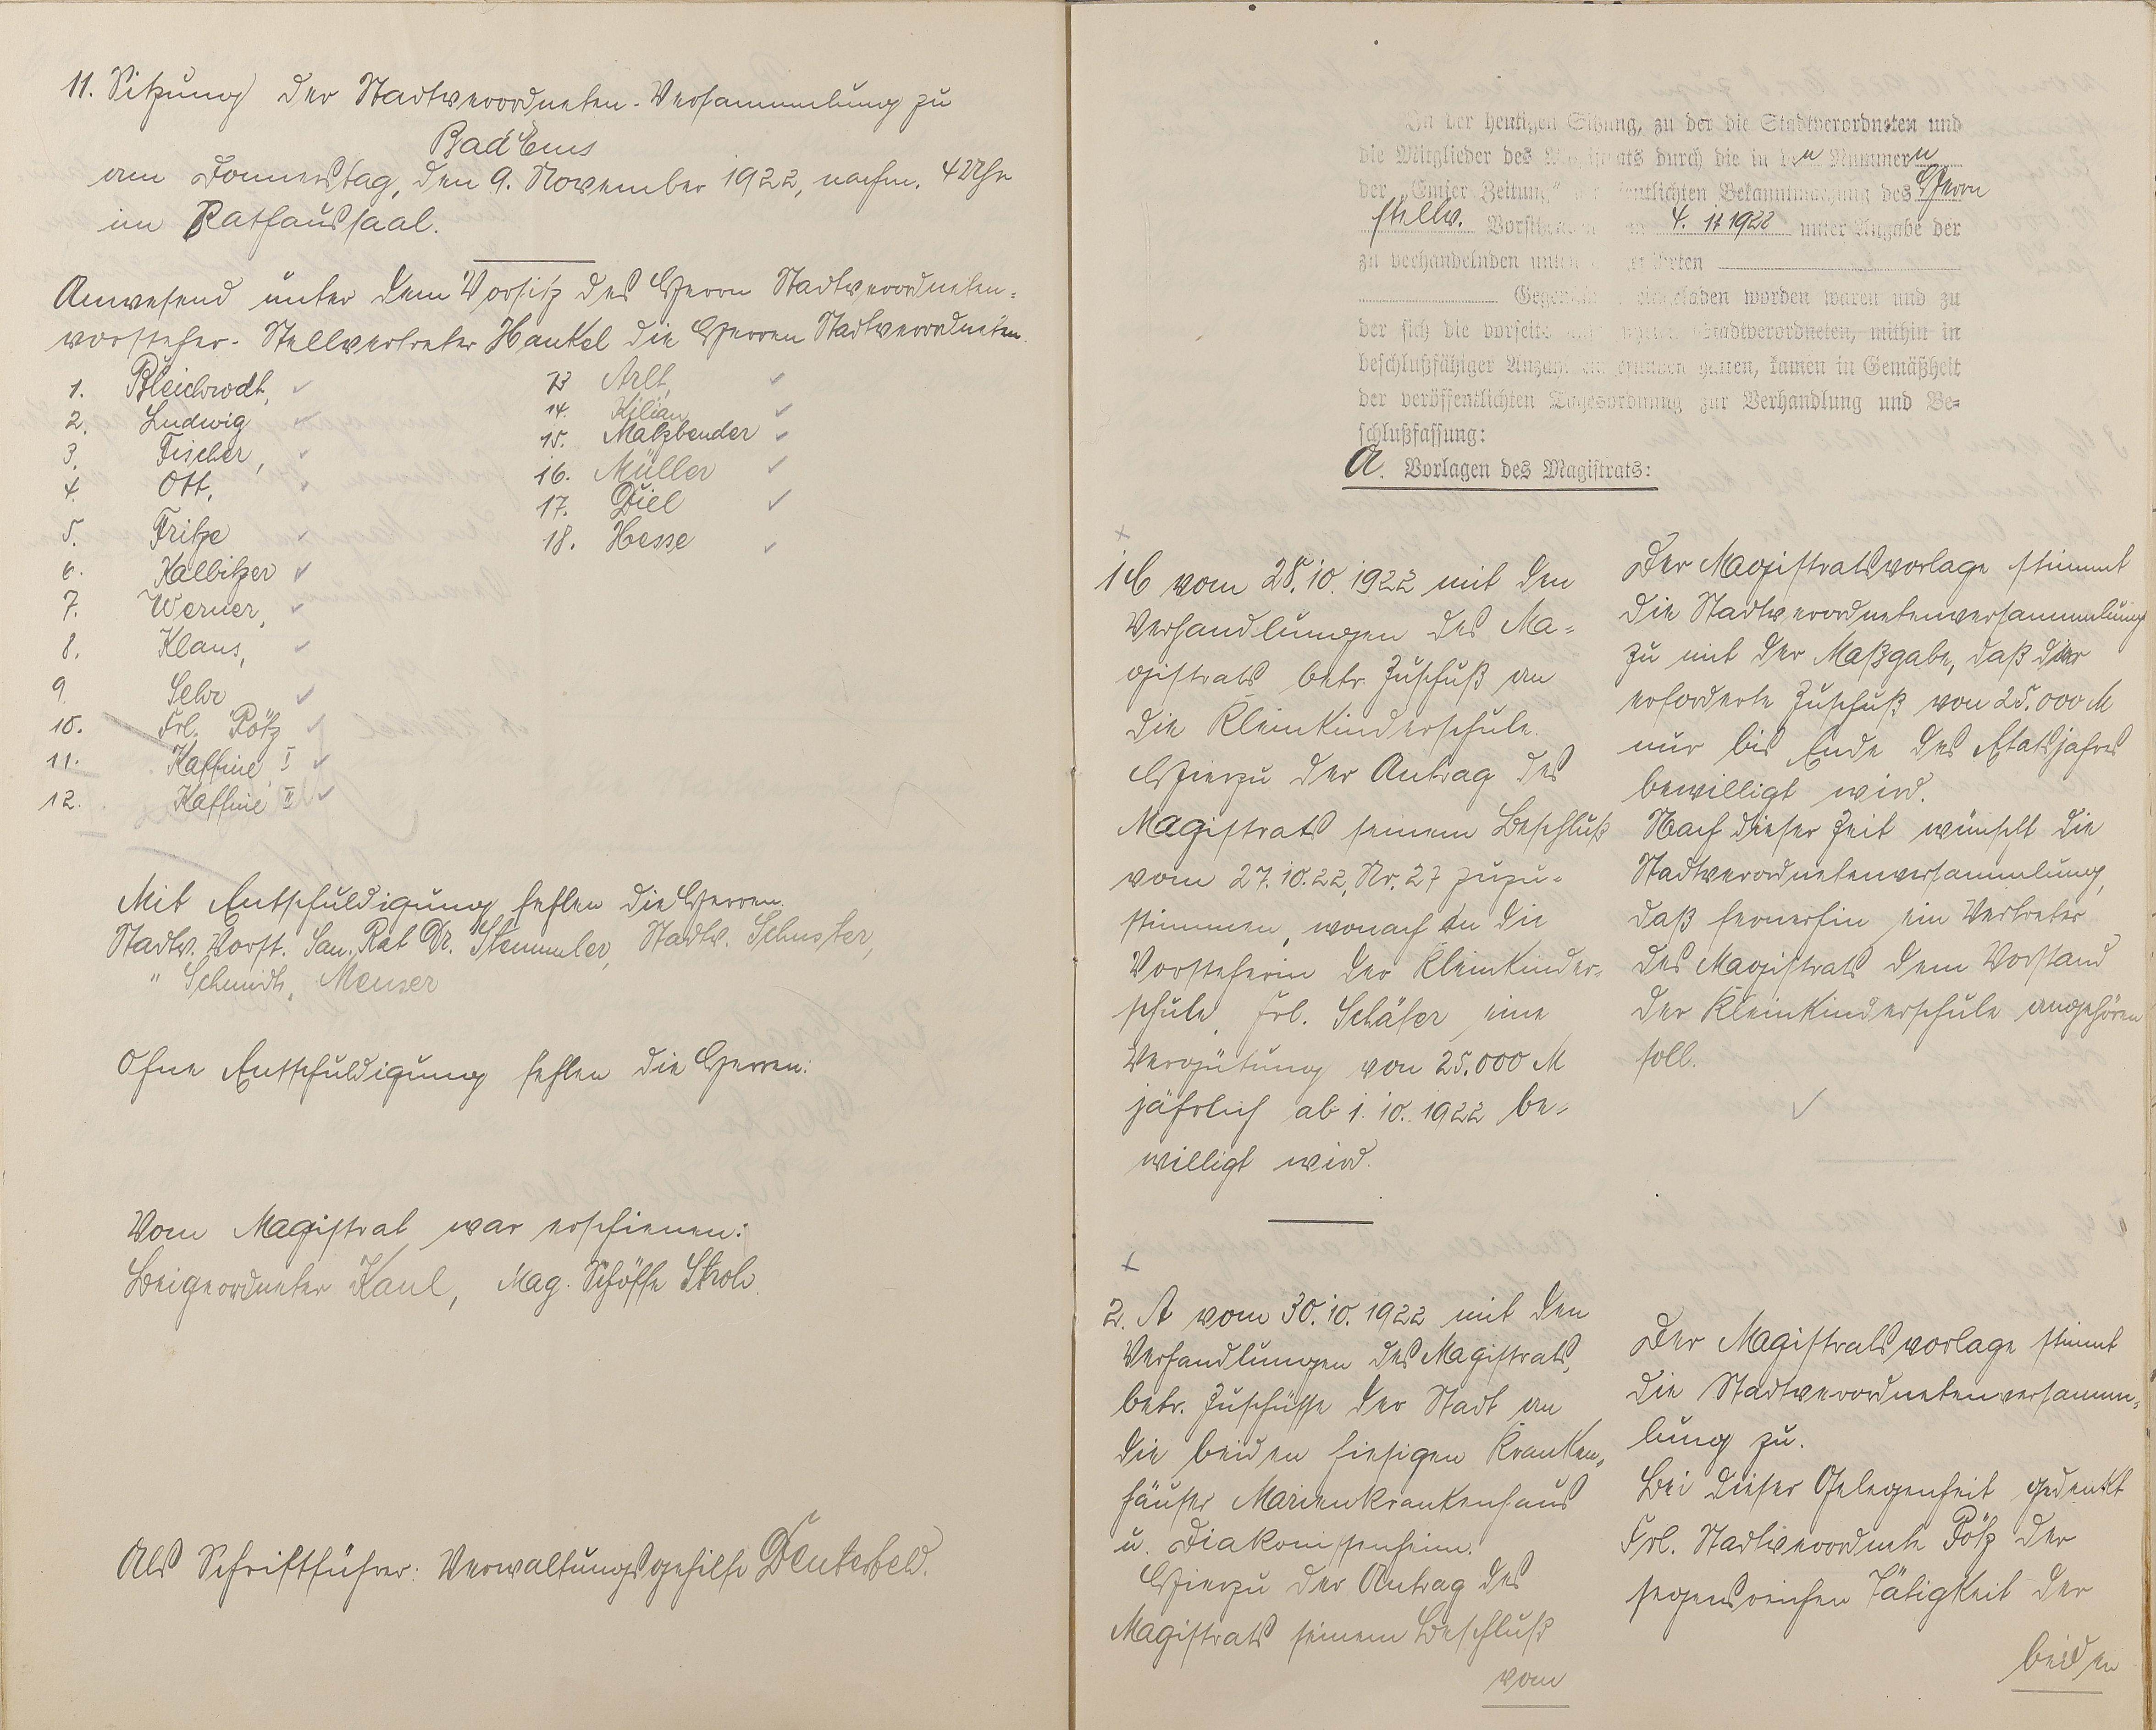 11. Sitzung der Stadtverordneten-Versammlung zu
Bad Ems
am Donnerstag, den 9. November 1922, nachm. 4 Uhr
im Rathaussaal.
Anwesend unter dem Vorsitz des Herrn Stadtverordneten-
vorsteher-Stellvertreter Hankel die Herren Stadtverordneten
1. Bleichrodt,
2. Ludwig
3. Fischer,
4. Ott,
5. Fritze
6. Kalbitzer
7. Werner,
8. Klaus,
9. Sehr
10. Frl. Pötz
11. Kaffine I
12. Kaffine II
13 Arlt,
14. Kilian
15. Matzbender
16. Müller
17. Diel
18. Hesse
Mit Entschuldigung fehlen die Herren
Stadtv. Vorst. San. Rat Dr. Stemmler, Stadtv. Schuster,
" Schmidt, Menser
Ohne Entschuldigung fehlen die Herren:
Vom Magistrat war erschienen:
Beigeordneter Kaul, Mag. Schöffe Stroh.
Als Schriftführer: Verwaltungsgehilfe
In der heutigen Sitzung, zu der die Stadtverordneten und
die Mitglieder des Magistrats durch die in den Nummern
der „Emser Zeitung" der öffentlichen Bekanntmachung des Herrn
stellv. Vorsitzenden vom 4. 11 1922 unter Angabe der
zu verhandelnden unten
Gegenstände eingeladen worden waren und zu
der sich die vorseits Stadtverordneten, mithin in
beschlußfähiger Anzahl eingefunden hatten, kamen in Gemäßheit
der veröffentlichten Tagesordnung zur Verhandlung und Be-
schlußfassung:
A. Vorlagen des Magistrats:
1 C vom 28.10.1922 mit den
Verhandlungen des Ma-
gistrats betr. Zuschuß an
die Kleinkinderschule.
Hierzu der Antrag des
Magistrats seinem Beschluß
vom 27.10.22, Nr. 27 zuzu-
stimmen, wonach an die
Vorsteherin der Kleinkinder-
schule, Frl. Schäfer eine
Vergütung von 25.000 M
jährlich ab 1.10.1922 be-
willigt wird.
Der Magistratsvorlage stimmt
die Stadtverordnetenversammlung
zu mit der Maßgabe, daß der
erforderte Zuschuß von 25.000 M
nur bis Ende des Etatsjahres
bewilligt wird.
Nach dieser Zeit wünscht die
Stadtverordnetenversammlung,
daß fernerhin ein Vertreter
des Magistrats dem Vorstand
der Kleinkinderschule angehören
soll.
2. A vom 30.10.1922 mit den
Verhandlungen des Magistrats,
betr. Zuschüsse der Stadt an
die beiden hiesigen Kranken-
häuser Marienkrankenhaus
u. Diakonissenheim.
Hierzu der Antrag des
Magistrats seinem Beschluß
vom
Der Magistratsvorlage stimmt
die Stadtverordnetenversamm-
lung zu.
Bei dieser Gelegenheit gedenkt
Frl. Stadtverordnete Pötz der
segensreichen Tätigkeit der
beiden